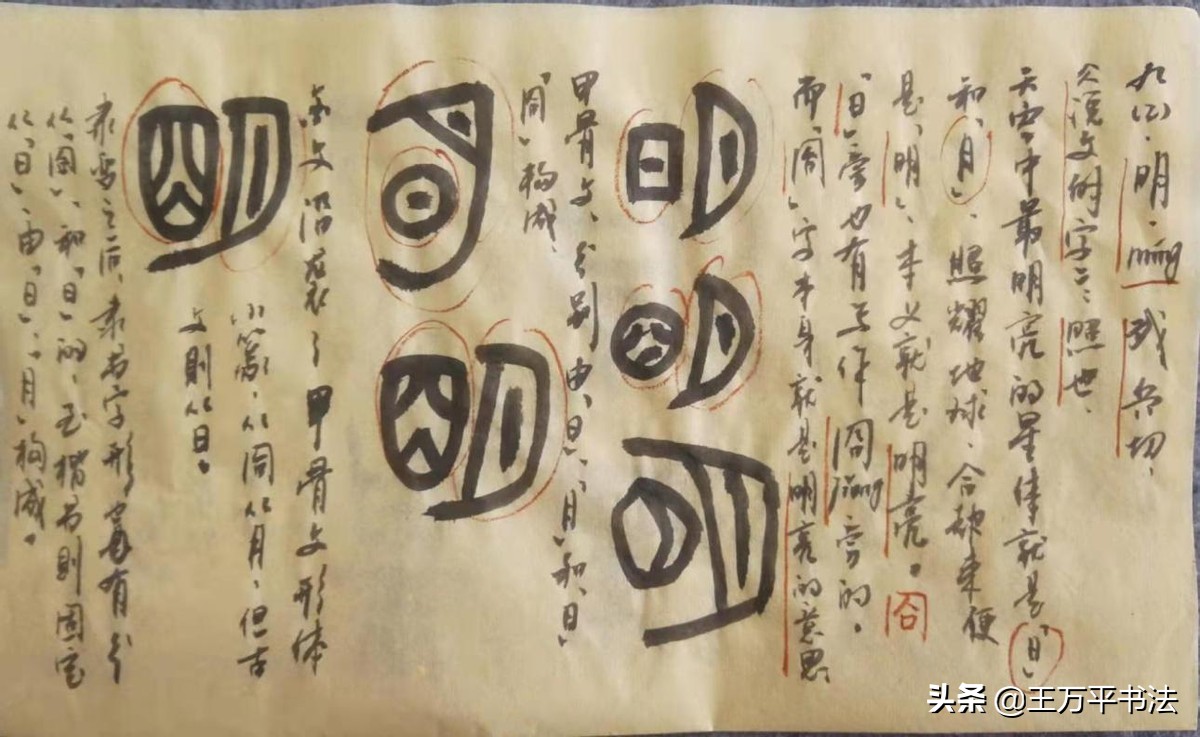 九(2)、明、míng 武兵切、
《说文解字》: 照也、
天空中最明亮的星体就是「日」
和「月」、照耀地球、合起来便
是「明」、本义就是明亮。囧
「日」旁也有写作囧jiǒng旁的。
而「囧」字本身就是明亮的意思
明
明
明
甲骨文、分别由「日」、「月」和「日」
「囧」构成、
明
明
金文沿袭了甲骨文形体
小篆、从囧从月、但古
文則从日。
明
隶变之后、隶书字形有分
从「囧」、和「日」的、至楷书則固定
从「日」由「日」、「月」构成。
头条 @王万平书法